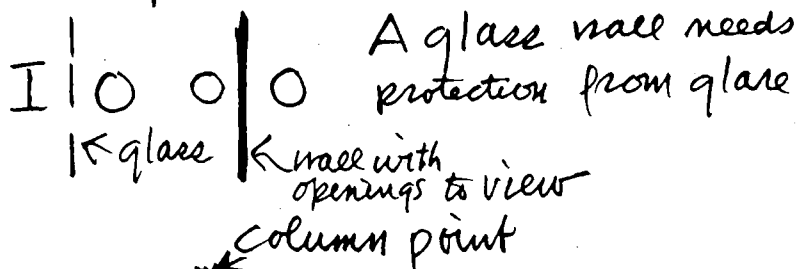 A glass wall needs
I O O O protection from glare
glass wall with
openings to view
column point